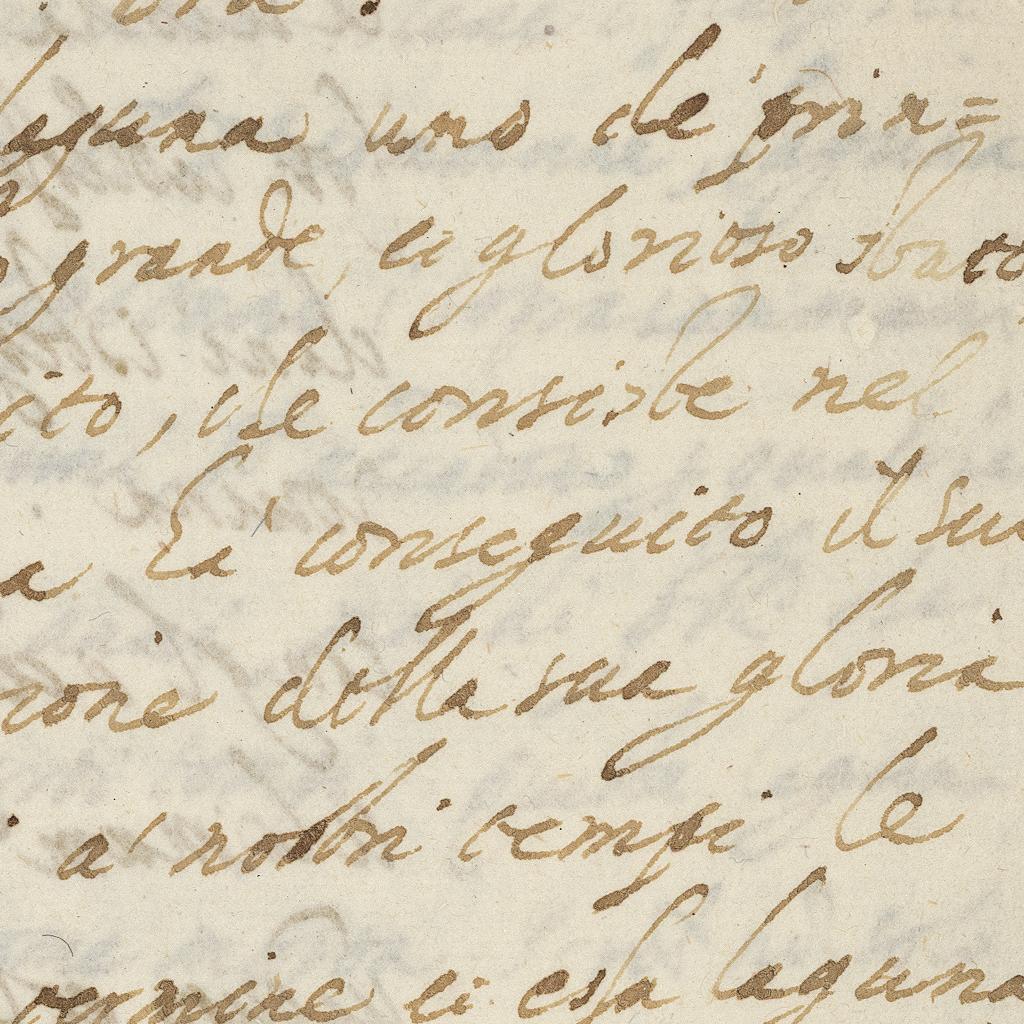 laguna uno de' prin=
grande, e glorioso stato
ito, che consiste nel
a hà conseguito il suo
zione della sua gloria
a' nostri tempi le
termine di essa laguna